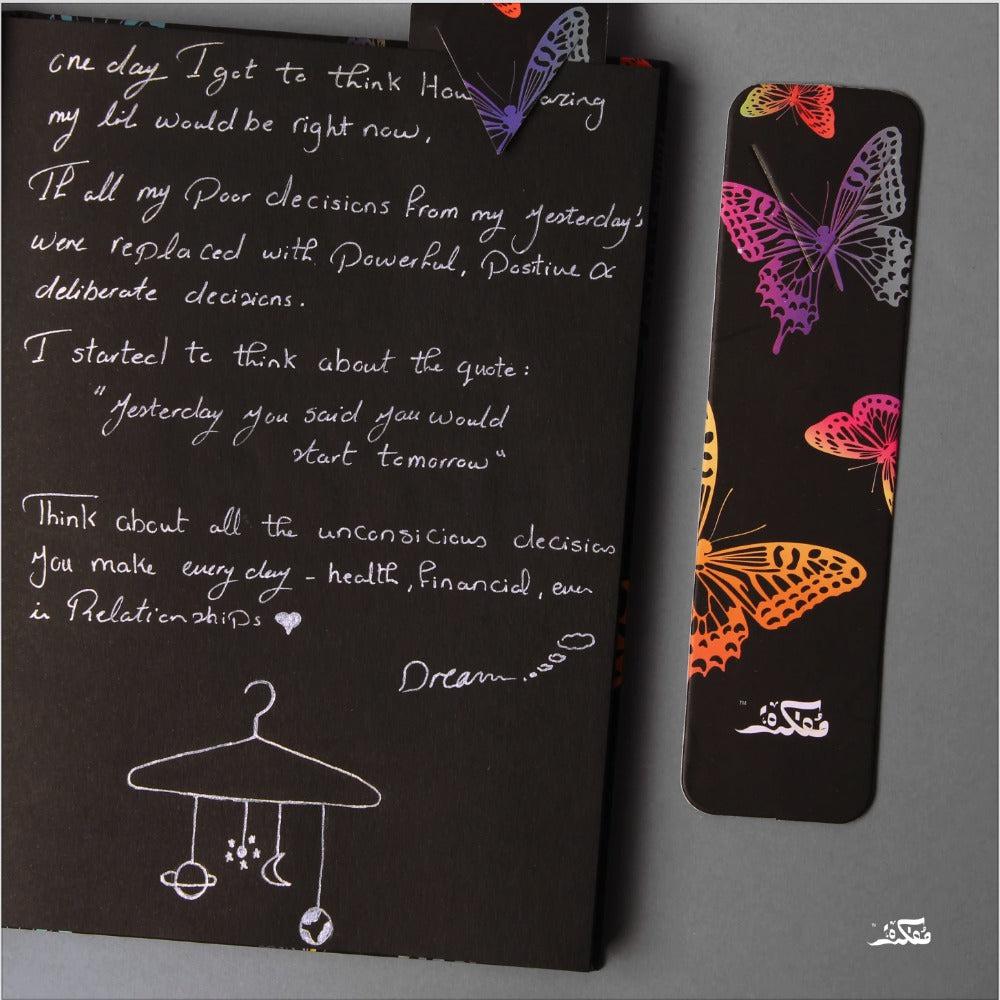 one day I got to think How azing
my lif would be right now,
If all my Poor decisions from my yesterday's
were replaced with Powerful, Positive &
deliberate decisions.
I started to think about the quote:
"Yesterday you said you would
start tomorrow"
Think about all the unconsicious decisions
you make every day - health, financial, even
in Relationships
Dream...
مفكرة ™
مفكرة ™